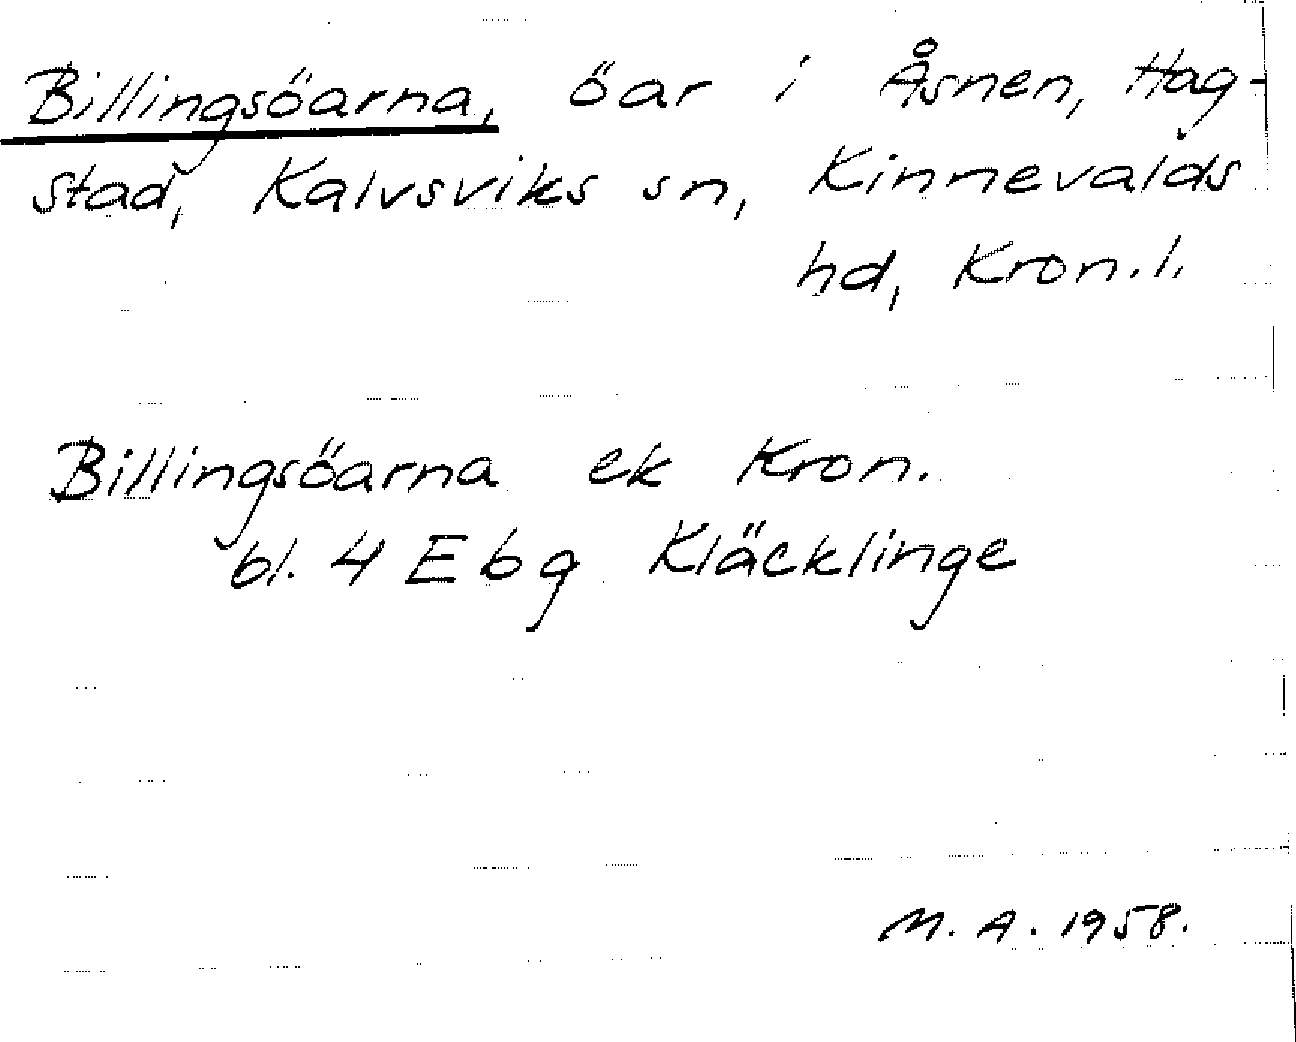 Billingsöarna, öar i Åsnen, Hag-
stad, Kalvsviks sn, Kinnevalds
hd, Kron.l.
Billingsöarna ek Kron.
bl. 4 E b g Kläcklinge
M. A. 1958.